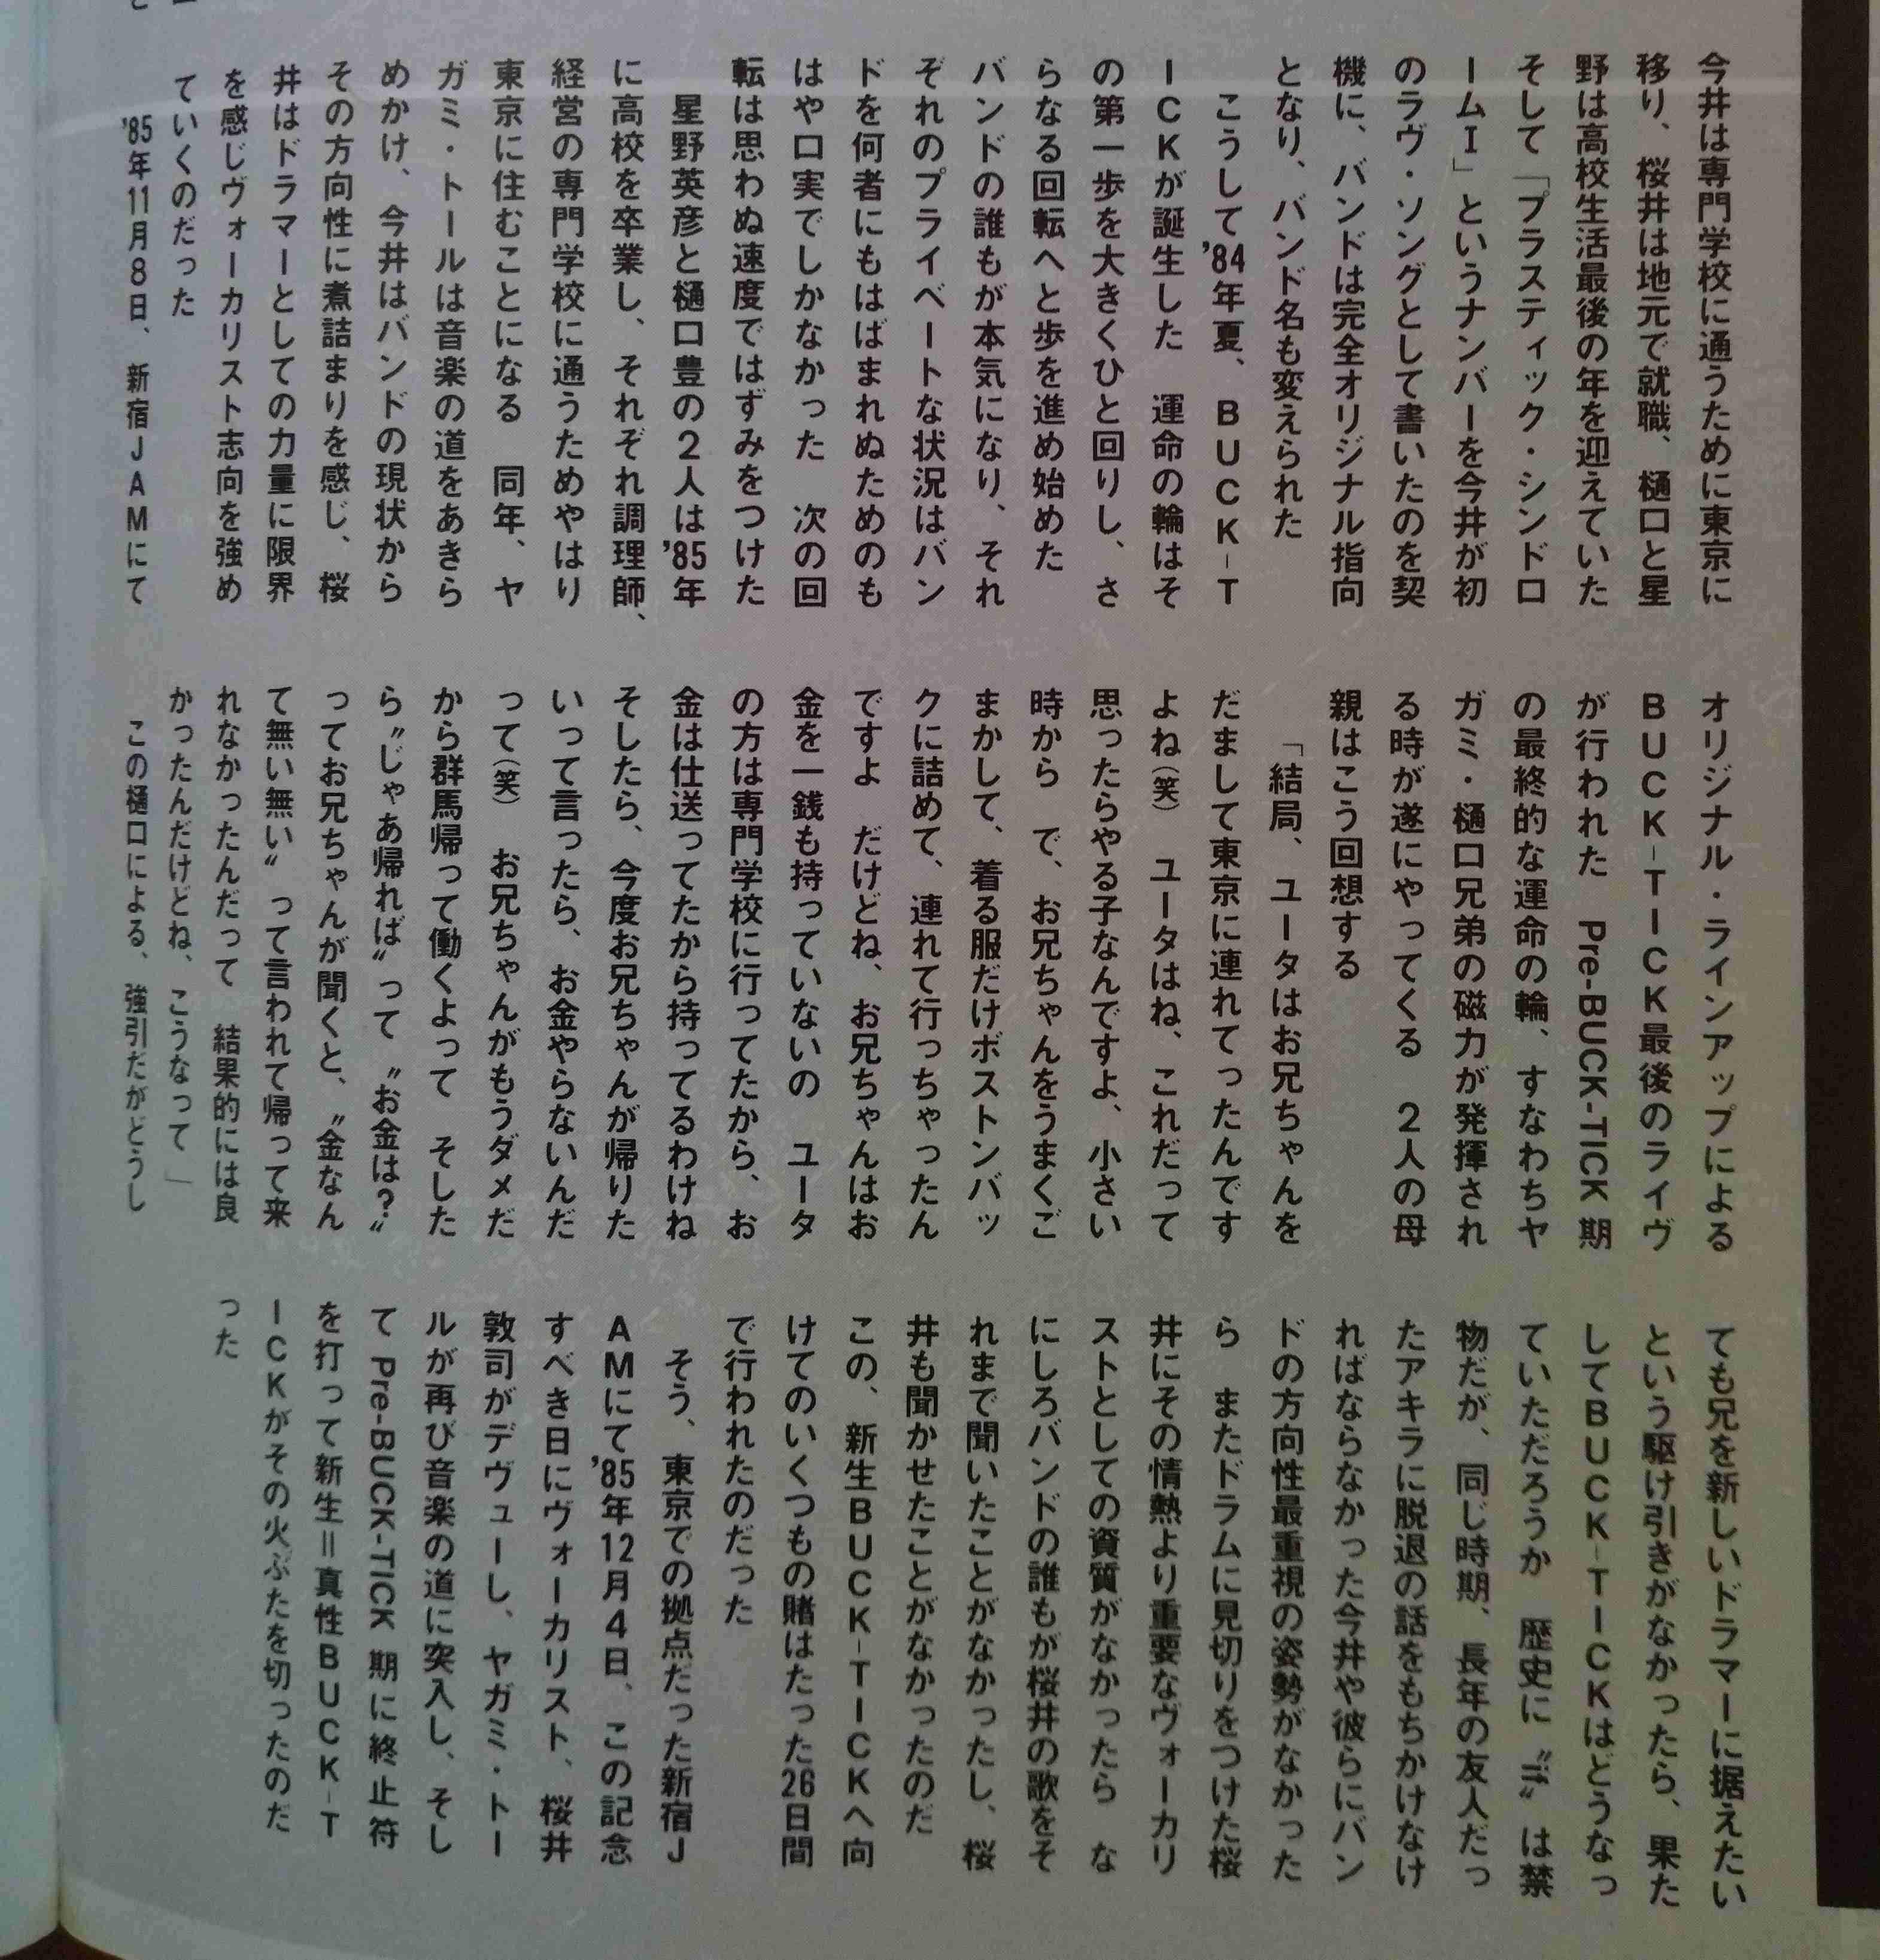 今井は専門学校に通うために東京に
移り、桜井は地元で就職、樋口と星
野は高校生活最後の年を迎えていた
そして「プラスティック・シンドロ
ームⅠ」というナンバーを今井が初
のラヴ・ソングとして書いたのを契
機に、バンドは完全オリジナル指向
となり、バンド名も変えられた
こうして'84年夏、BUCK-T
ICKが誕生した 運命の輪はそ
の第一歩を大きくひと回りし、さ
らなる回転へと歩を進め始めた
バンドの誰もが本気になり、それ
ぞれのプライベートな状況はバン
ドを何者にもはばまれぬためのも
はや口実でしかなかった 次の回
転は思わぬ速度ではずみをつけた
星野英彦と樋口豊の2人は'85年
に高校を卒業し、それぞれ調理師、
経営の専門学校に通うためやはり
東京に住むことになる 同年、ヤ
ガミ・トールは音楽の道をあきら
めかけ、今井はバンドの現状から
その方向性に煮詰まりを感じ、桜
井はドラマーとしての力量に限界
を感じヴォーカリスト志向を強め
ていくのだった
'85年11月8日、新宿JAMにて
オリジナル・ラインアップによる
BUCK-TICK最後のライヴ
が行われた Pre-BUCK-TICK 期
の最終的な運命の輪、すなわちヤ
ガミ・樋口兄弟の磁力が発揮され
る時が遂にやってくる 2人の母
親はこう回想する
「結局、ユータはお兄ちゃんを
だまして東京に連れてったんです
よね(笑) ユータはね、これだって
思ったらやる子なんですよ、小さい
時から で、お兄ちゃんをうまくご
まかして、着る服だけボストンバッ
クに詰めて、連れて行っちゃったん
ですよ だけどね、お兄ちゃんはお
金を一銭も持っていないの ユータ
の方は専門学校に行ってたから、お
金は仕送ってたから持ってるわけね
そしたら、今度お兄ちゃんが帰りた
いって言ったら、お金やらないんだ
って(笑) お兄ちゃんがもうダメだ
から群馬帰って働くよって そした
ら〝じゃあ帰れば〟って〝お金は?〟
ってお兄ちゃんが聞くと、〝金なん
て無い無い〟って言われて帰って来
れなかったんだって 結果的には良
かったんだけどね、こうなって」
この樋口による、強引だがどうし
ても兄を新しいドラマーに据えたい
という駆け引きがなかったら、果た
してBUCK-TICKはどうなっ
ていただろうか 歴史に〝if〟は禁
物だが、同じ時期、長年の友人だっ
たアキラに脱退の話をもちかけなけ
ればならなかった今井や彼らにバン
ドの方向性最重視の姿勢がなかった
ら またドラムに見切りをつけた桜
井にその情熱より重要なヴォーカリ
ストとしての資質がなかったら な
にしろバンドの誰もが桜井の歌をそ
れまで聞いたことがなかったし、桜
井も聞かせたことがなかったのだ
この、新生BUCK-TICKへ向
けてのいくつもの賭はたった26日間
で行われたのだった
そう、東京での拠点だった新宿J
AMにて'85年12月4日、この記念
すべき日にヴォーカリスト、桜井
敦司がデヴューし、ヤガミ・トー
ルが再び音楽の道に突入し、そし
て Pre-BUCK-TICK 期に終止符
を打って新生＝真性BUCK-T
ICKがその火ぶたを切ったのだ
った